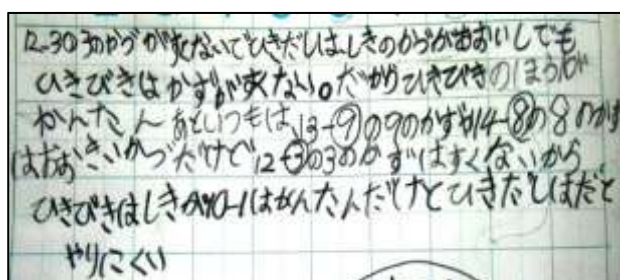 12-3の3のかづがすくないでひきだしはしきのかづがおおいしでも
ひきびきはかずがすくない。だからひきびきのほうが
かんたん あといつもは、13-9の9のかずや14-8の8のかず
はおおきいかづだけど12-3の3のかずはすくないから
ひきびきはしきが10-1はかんたんだけどひきだしはだと
やりにくい